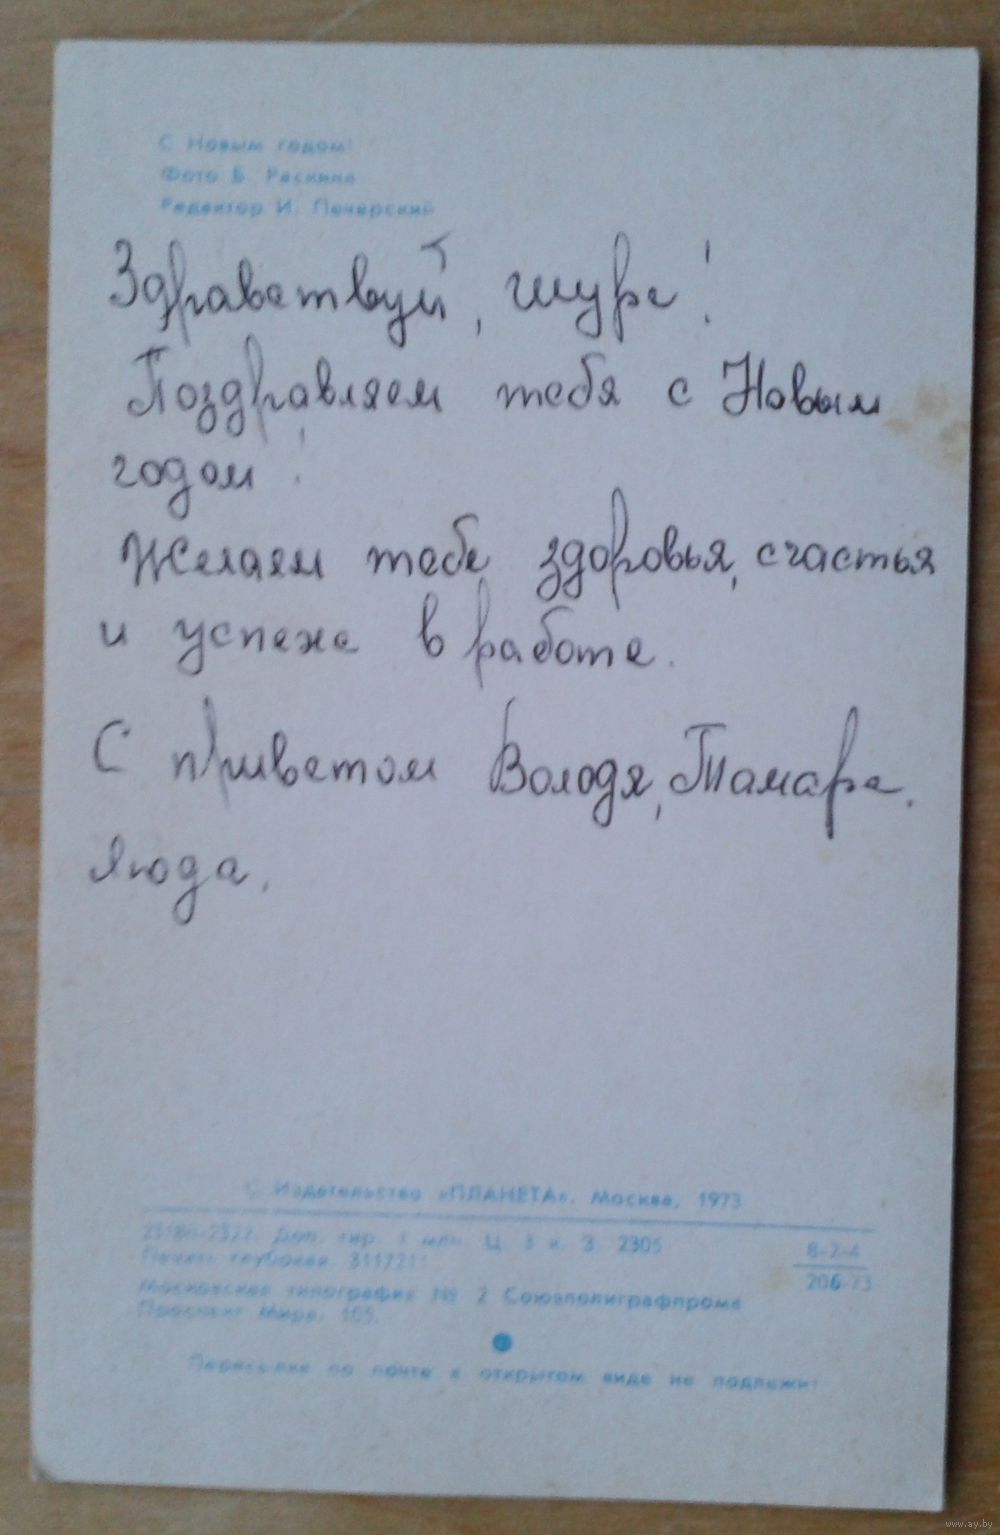 С Новым годом!
Фото Б. Раскина
Редактор И. Печерский
Здравствуй, Шура!
Поздравляем тебя с Новым
годом!
Желаем тебе здоровья, счастья
и успеха в работе.
С приветом Володя, Тамара,
Люда.
Издательство «ПЛАНЕТА». Москва, 1973
Доп. тир. 1 млн. Ц. 3 к. З. 2305
8-2-4
Печать глубокая.
206-73
Московская типография № 2 Союзполиграфпрома
Проспект Мира, 105.
Пересылке по почте в открытом виде не подлежит
www.ay.by